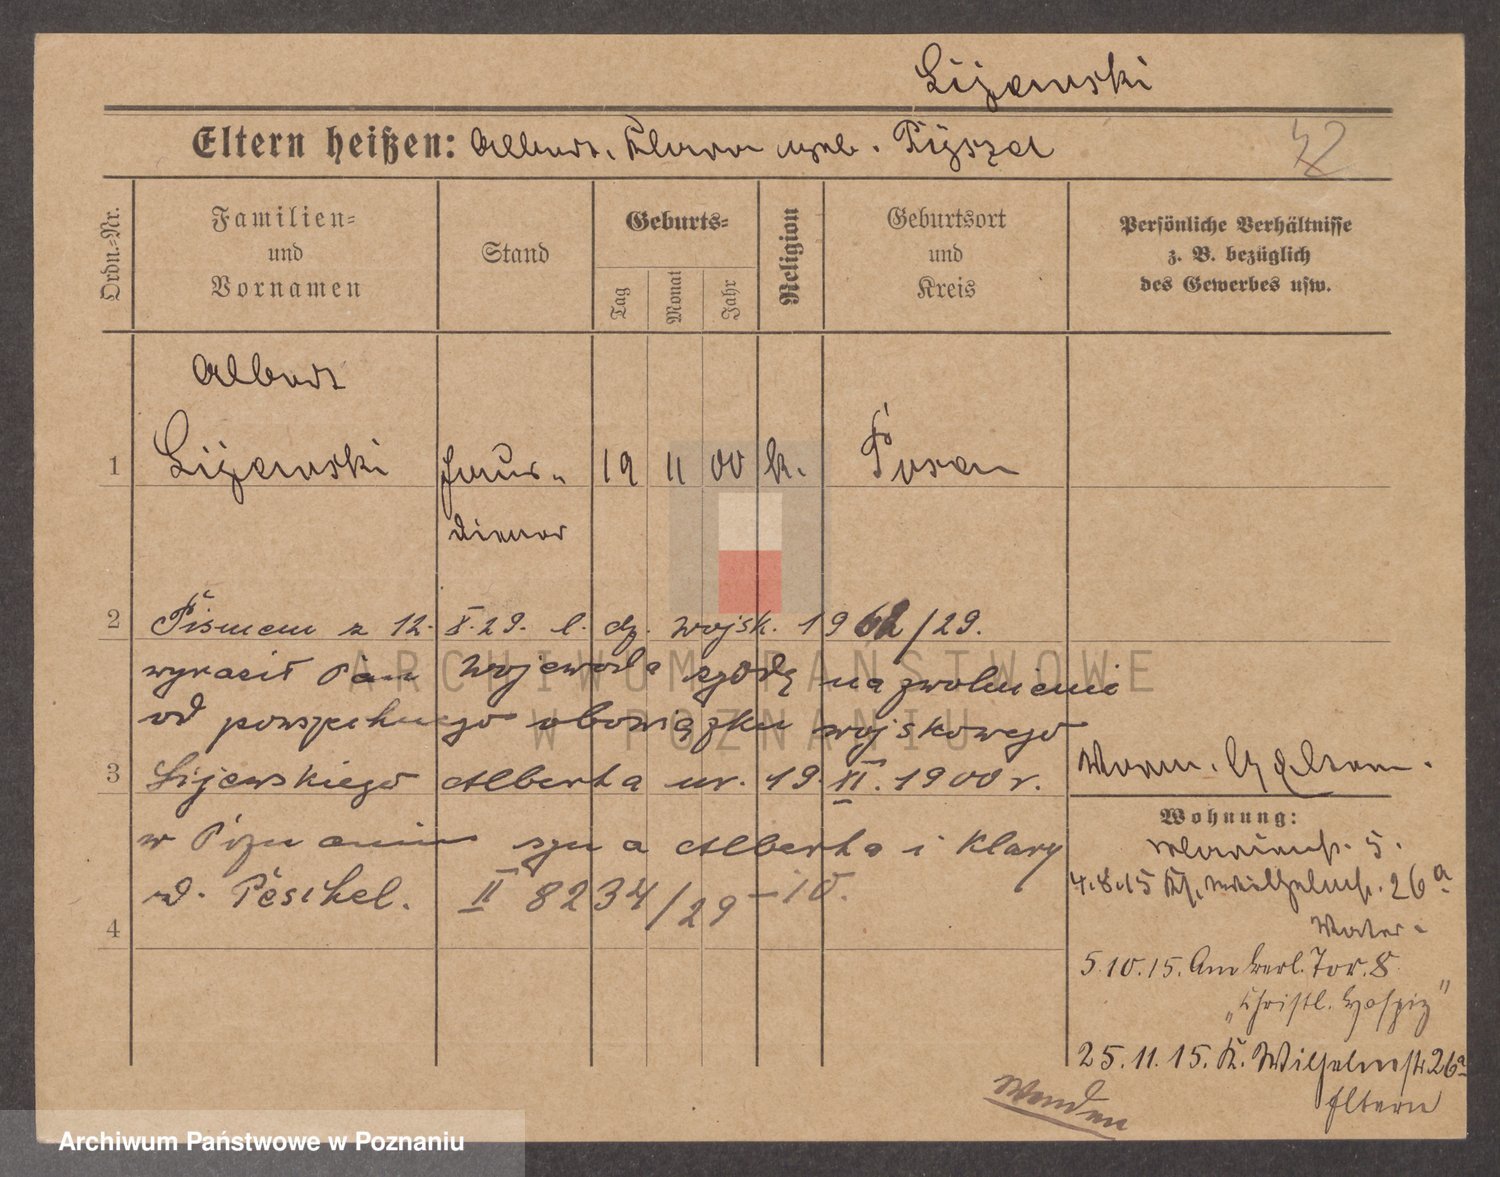 Lijewski
Eltern heißen: Albert, Klara geb.
42
Ordn.=Nr.
Familien=
und
Vornamen
Stand
Geburts=
Tag
Monat
Jahr
Religion
Geburtsort
und
Kreis
Persönliche Verhältnisse
z. B. bezüglich
des Gewerbes usw.
Albert
1 Lijewski Haus- 19 11 00 k. Posen
diener
2 Pismem z 12. X.29. l. dz. wojsk. 1962/29.
wyraził Pan Wojewoda zgodę na zwolnienie
od powszechnego obowiązku wojskowego
3 Lijewskiego Alberta ur. 19.XI.1900 r.
w Poznaniu syna Alberta i Klary
z d. Peschel. II 8234/29 – 10.
4
Vorm. b/ Eltern.
Wohnung:
5.
4.8.15 K. Wilhelmstr. 26a
Vater
5.10.15. Am Berl. Tor. 8
„Christl. Hospiz"
25.11.15. K. Wilhelmstr. 26a
Eltern
Wenden
ARCHIWUM PAŃSTWOWE
W POZNANIU
Archiwum Państwowe w Poznaniu